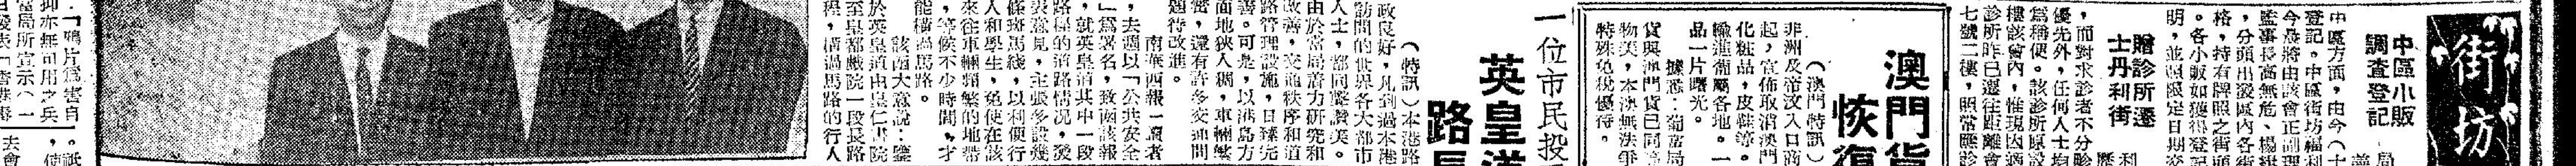 街坊
中區小販
調查登記
中區方面,由今(十
登記。中區街坊福利
今晨將由該會正副理
監事長高無危、楊緝
,分頭出發區內各街
格,持有牌照之街頭
。各小販如獲得登記
明,並照限定日期交
贈診所遷
士丹利街
,而對求診者不分畛
優先外,任何人士均
爲稱便。該診所原設
樓該會內,惟現因適
診所昨已遷往距離會
七號二樓,照常贈診
澳門貨
恢復
(澳門特訊)
非洲及帝汶入口商
起,宣佈取消澳門
化粧品,皮鞋等。
輸進葡屬各地。一
品一片曙光。
據悉:葡當局
貨與澳門貨已同
物美,本澳無法爭
特殊免稅優待。
一位市民投
英皇道
路長
(特訊)本港路
政良好,凡到過本港
訪問的世界各大都市
人士,都同聲讚美。
由於當局潛力研究和
改善,交通秩序和道
路管理設施,日臻完
善。可是,以港島方
面地狹人稠,車輛繁
密,還有許多交通問
題待改進。
南華西報一讀者
,去週以「公共安全
」爲署名,致函該報
,就英皇道其中一段
路程的道路情况,發
表意見,主張多設幾
條斑馬綫,以利便行
人和學生,免使在該
來往車輛頻繁的地帶
,等候不少時間,才
能橫過馬路。
該函大意說:鑒
於英皇道由皇仁書院
至皇都戲院一段長路
程,橫過馬路的行人